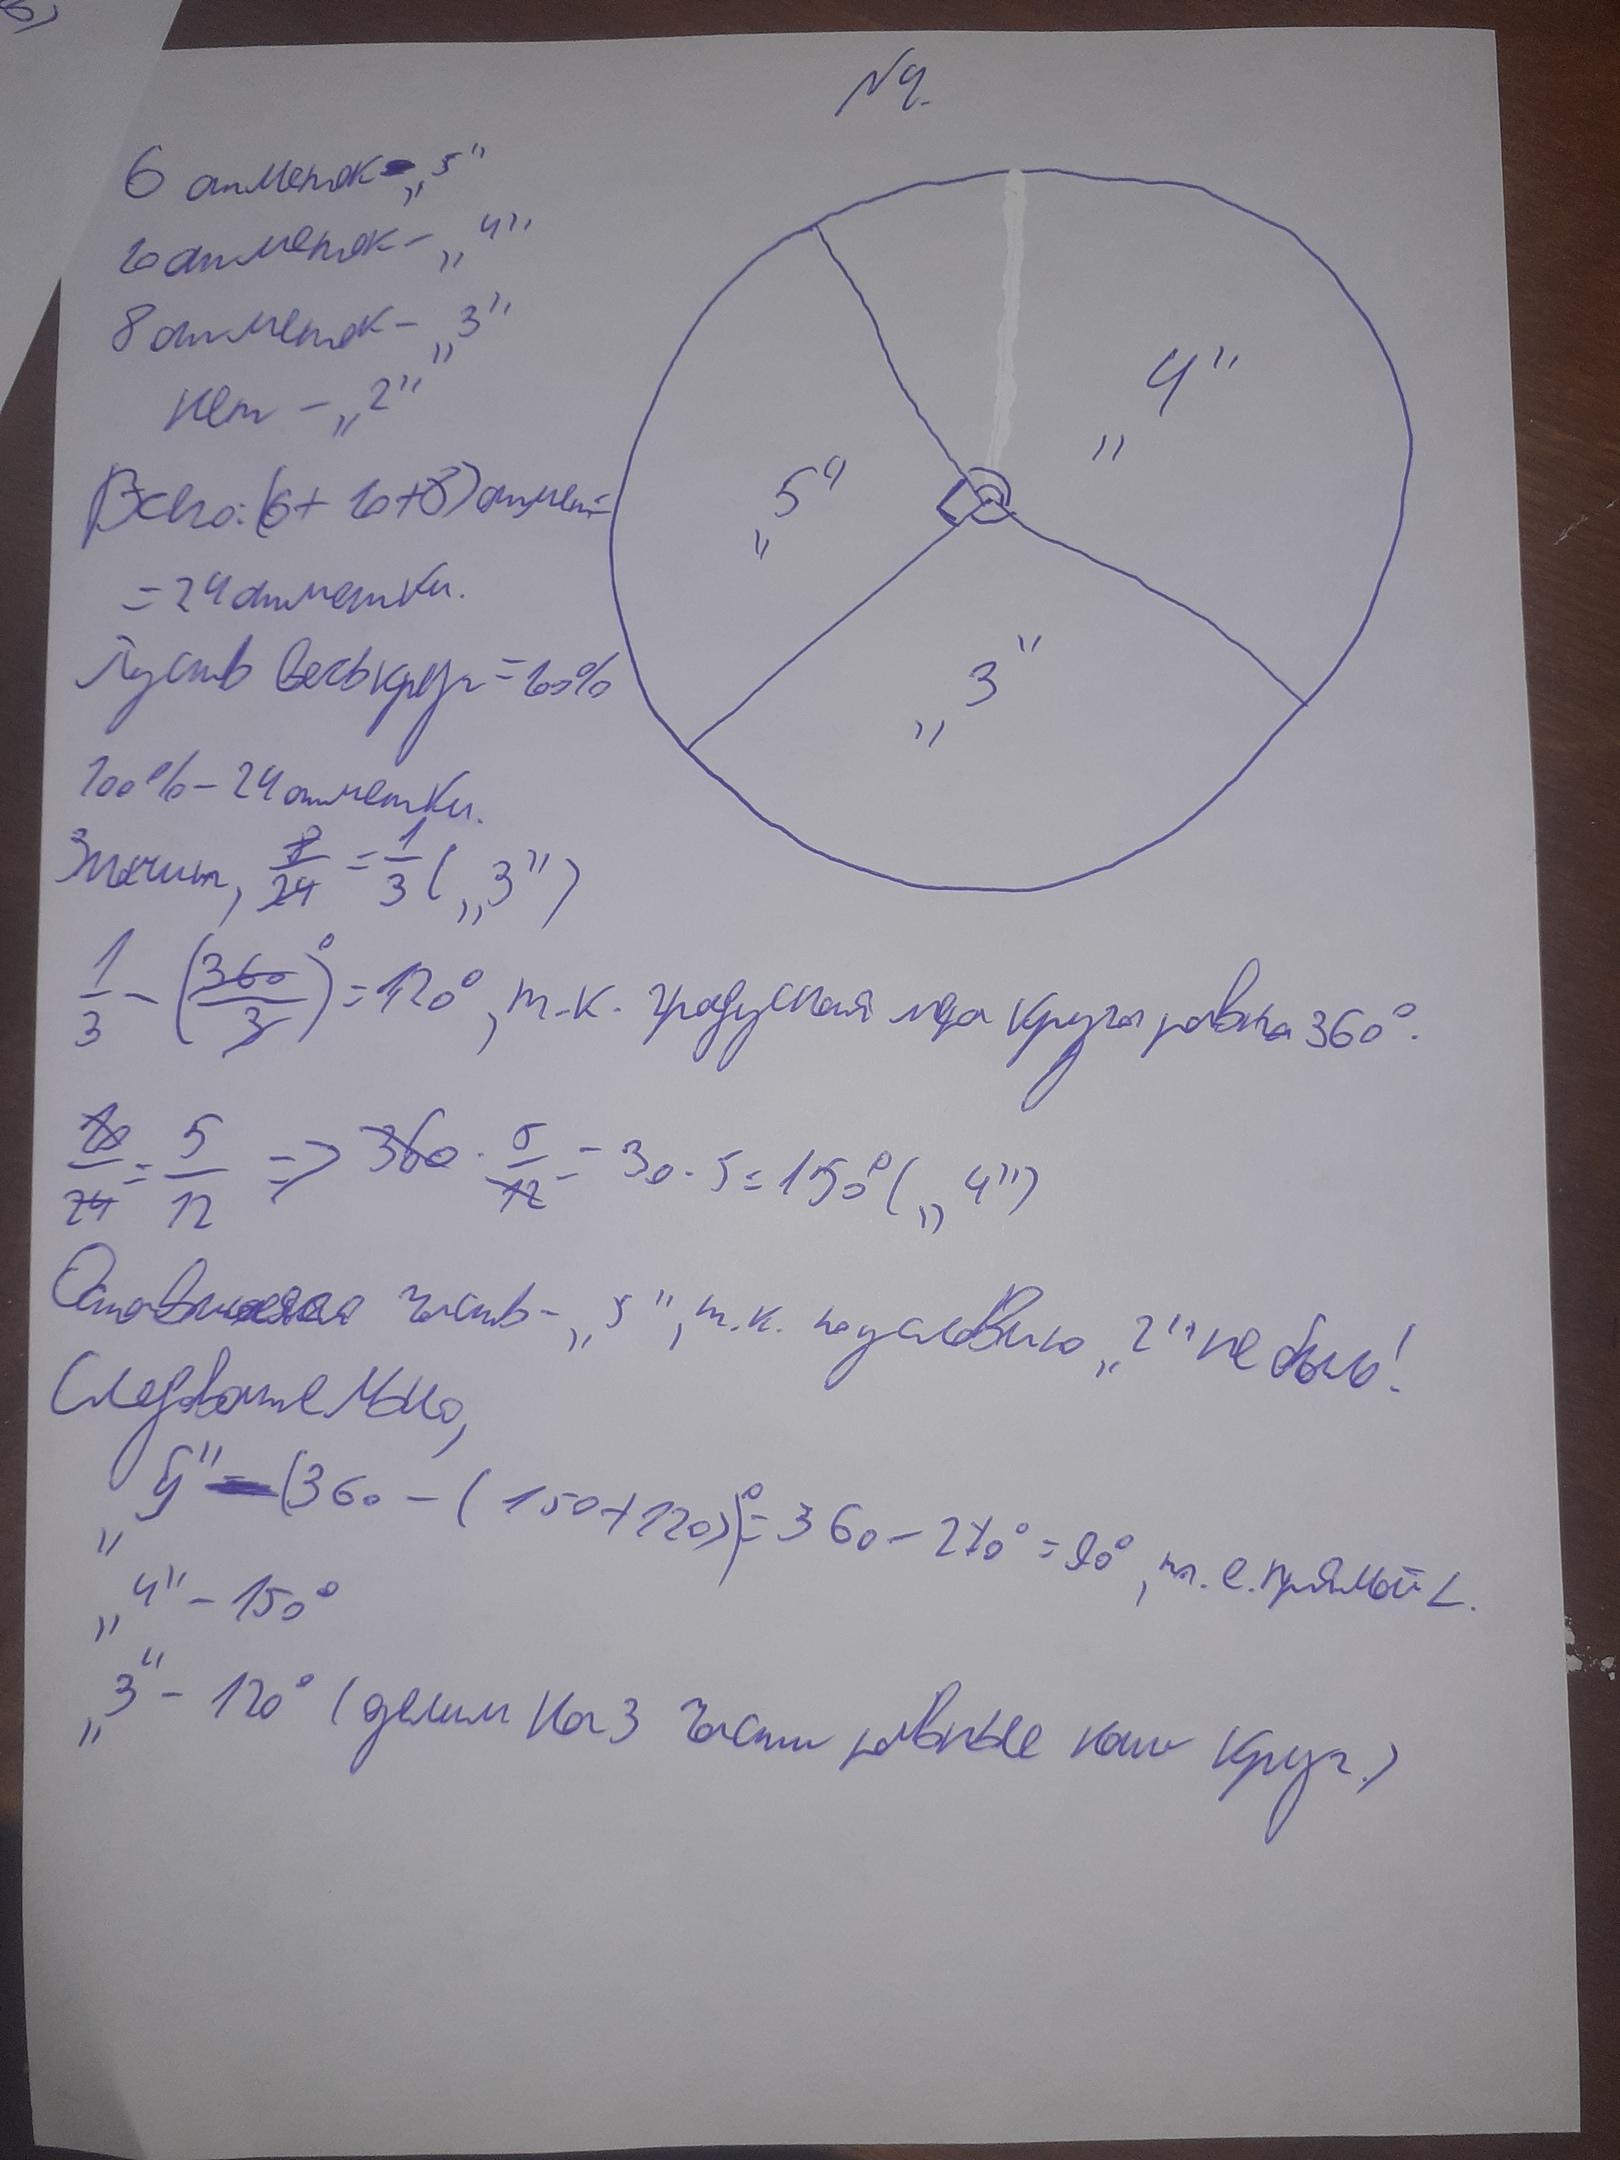 в)
№4.
6 отметок - „5“
10 отметок - „4“
8 отметок - „3“
нет - „2“
Всего: (6+10+8) отмет=
=24 отметки.
Пусть весь круг = 100%
100% - 24 отметки.
Значит, 8/24 = 1/3 („3“)
1/3 - (360/3)° = 120°, т.к. градусная мера круга равна 360°.
10/24 = 5/12 => 360 · 5/12 = 30 · 5 = 150° („4“)
Оставшаяся часть - „5“, т.к. по условию „2“ не было!
Следовательно,
„5“ = (360 - (150+120))° = 360 - 270° = 90°, т.е. прямой ∠.
„4“ - 150°
„3“ - 120° (делим на 3 части равные наш круг.)
„5“
„4“
„3“